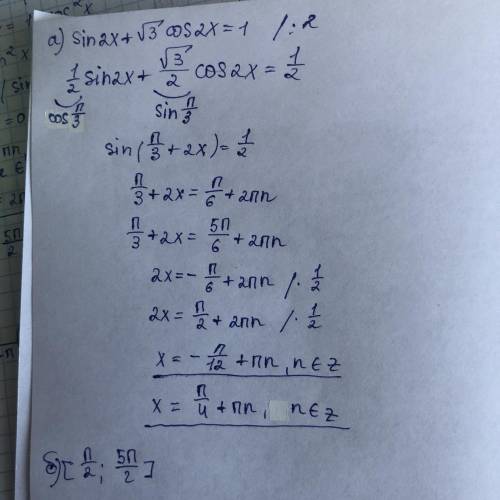 а) sin2x + √3 cos2x = 1 /:2
1/2 sin2x + √3/2 cos2x = 1/2
cos π/3 sin π/3
sin(π/3 + 2x) = 1/2
π/3 + 2x = π/6 + 2πn
π/3 + 2x = 5π/6 + 2πn
2x = -π/6 + 2πn /· 1/2
2x = π/2 + 2πn /· 1/2
x = -π/12 + πn, n ∈ z
x = π/4 + πn, n ∈ z
б) [π/2; 5π/2]